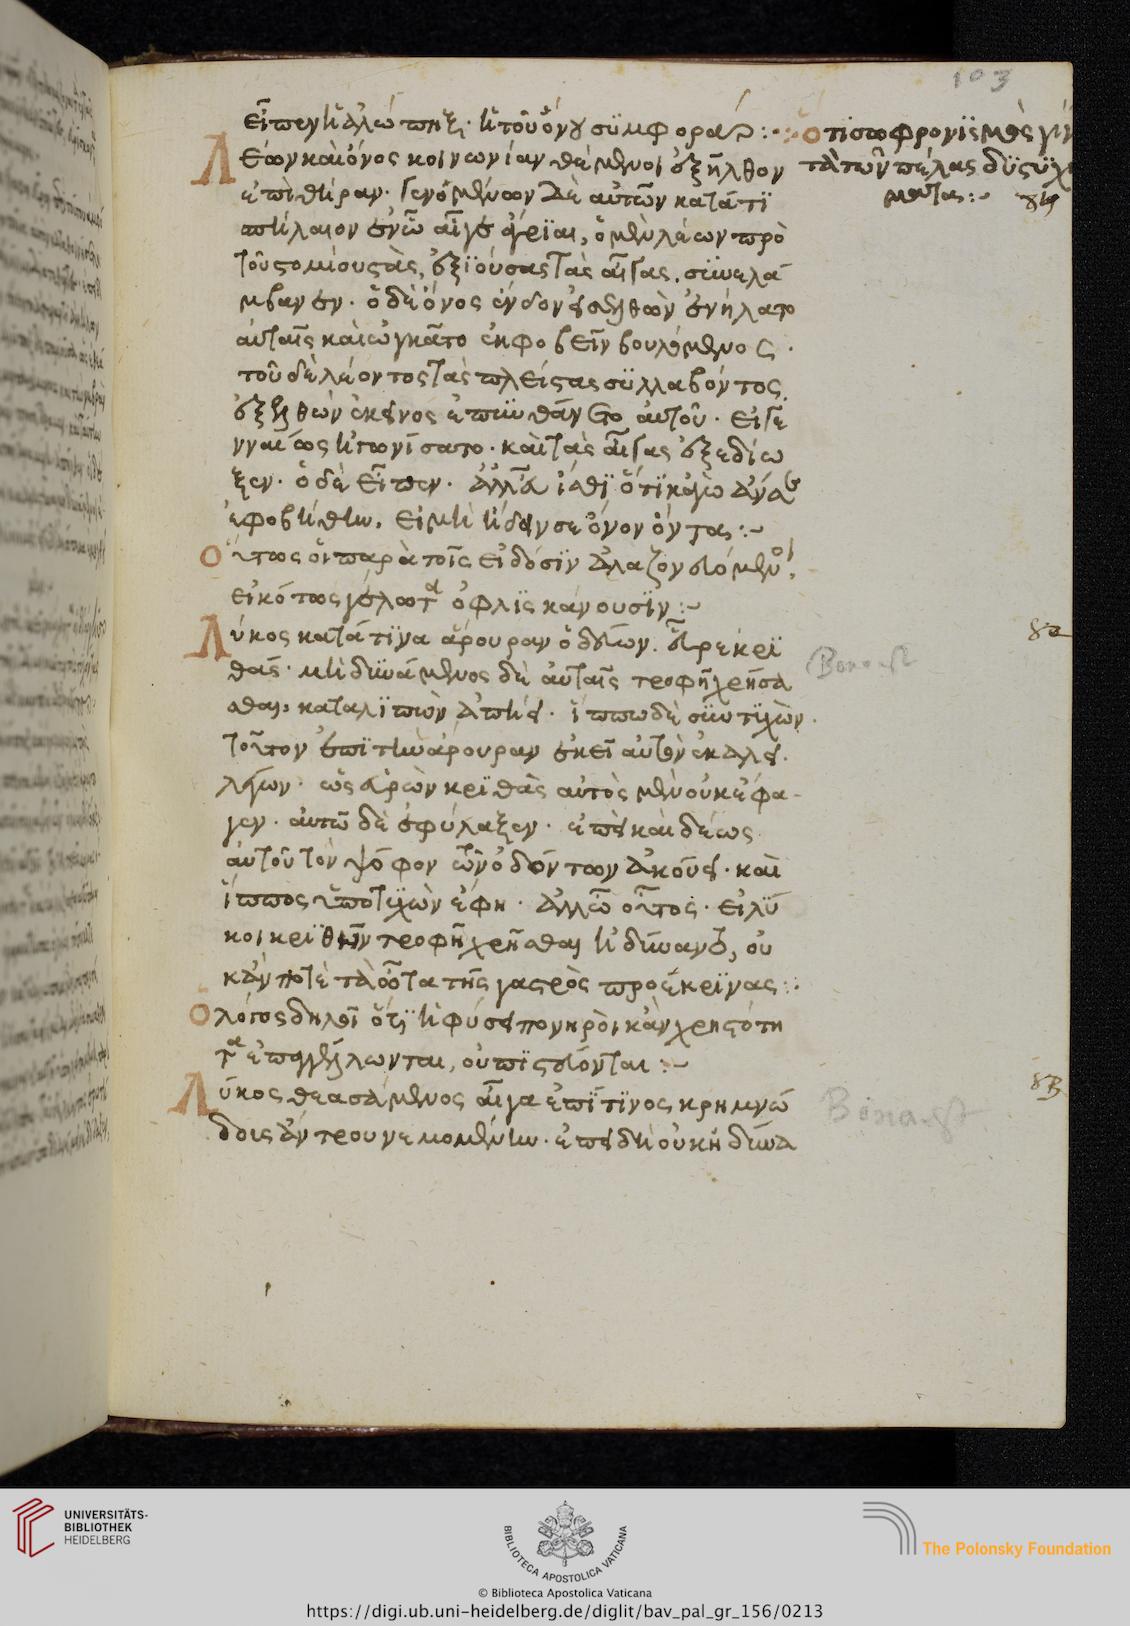 103
εἶπεν ἡ ἀλώπηξ· ἡ τοῦ ὄνου συμφορά:·
Ὅτι σωφρονισμὸς γίν
τὰ τῶν πέλας δυστυχ
ματα:·
Λέων καὶ ὄνος κοινωνίαν θέμενοι ἐξῆλθον
ἐπὶ θήραν· γενόμενων δὲ αὐτῶν κατά τι
σπήλαιον ἐν ὧ αἶγες ἄγριαι, ὁ μὲν λέων πρὸ
τοῦ στομίου στὰς, ἐξϊούσας τὰς αἶγας, συνελά
μβανεν· ὁ δὲ ὄνος ἔνδον εἰσελθὼν ἐνήλατο
αὐταῖς καὶ ὠγκᾶτο ἐκφοβεῖν βουλόμενος·
τοῦ δὲ λέοντος τὰς πλείστας συλλαβόντος,
ἐξελθὼν ἐκεῖνος ἐπυνθάνετο αὐτοῦ· εἰ γε
νναίως ἠγωνίσατο· καὶ τὰς αἶγας ἐξεδίω
ξεν· ὁ δὲ εἶπεν· ἀλλὰ ἴσθι ὅτι κἀγὼ ἄν σε
ἐφοβήθην, εἰ μὴ ἤδειν σε ὄνον ὄντα:·
Οὕτως οἱ παρὰ τοῖς εἰδόσιν ἀλαζονευόμενοι,
εἰκότως γέλωτα ὀφλισκάνουσιν:·
Λύκος κατά τινα ἄρουραν ὁδεύων. εὗρε κρι
θάς· μὴ δυνάμενος δὲ αὐταῖς τροφῇ χρήσα
σθαι, καταλιπὼν ἀπῄει· ἵππω δὲ συντυχὼν·
τοῦτον ἐπὶ τὴν ἄρουραν ἐκεῖ αὐτὸν ἐκάλει·
λέγων· ὡς εὑρὼν κριθὰς αὐτὸς μὲν οὐκ ἔφα-
γεν· αὐτῶ δὲ ἐφύλαξεν· ἐπεὶ καὶ δέως
αὐτοῦ τὸν ψόφον τῶν ὀδόντων ἀκούει· καὶ
ἵππος ὑποτυχὼν ἔφη· ἀλλ' ὦ οὗτος· εἰ λύ
κοι κριθῶν τροφῇ χρῆσθαι ἠδύναντο, οὐ
κ ἄν ποτὲ τὰ ὦτα τῆς γαστρὸς προέκρινας:·
Ὁ λόγος δηλοῖ ὅτι ἡ φύσει πονηροὶ κἂν χρηστότη
τα ἐπαγγέλωνται, οὐ πιστεύονται:·
Bonast
Λύκος θεασάμενος αἶγα ἐπί τινος κρημνώ
δοις ἄντρου νεμομένην· ἐπειδὴ οὐκ ἠδύνα
Bonast
UNIVERSITÄTS-
BIBLIOTHEK
HEIDELBERG
BIBLIOTECA APOSTOLICA VATICANA
The Polonsky Foundation
© Biblioteca Apostolica Vaticana
https://digi.ub.uni-heidelberg.de/diglit/bav_pal_gr_156/0213